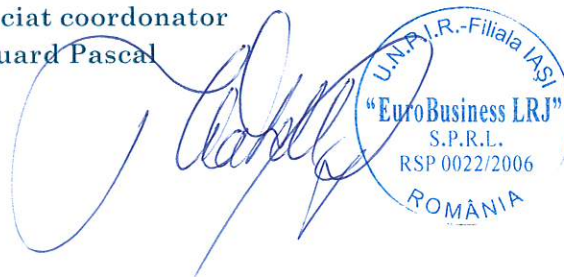 ciat coordonator
uard Pascal
U.N.P.I.R.-Filiala IAŞI
"EuroBusiness LRJ"
S.P.R.L.
RSP 0022/2006
ROMÂNIA